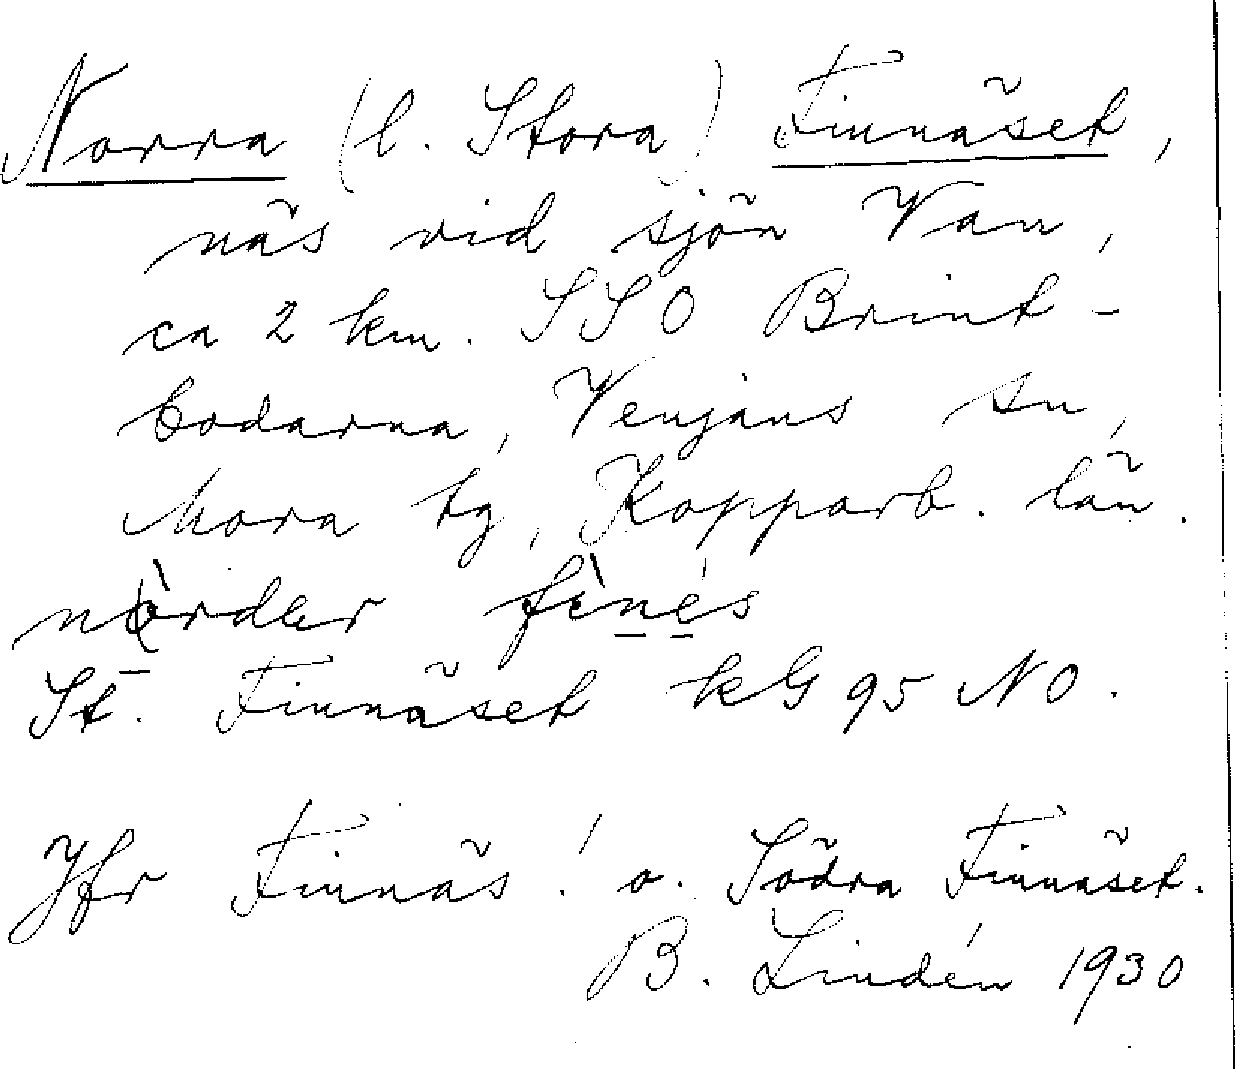 Norra (l. Stora) Finnäset,
näs vid sjön Van,
ca 2 km. SSO Brint-
bodarna, Venjans sn,
Mora tg, Kopparb. län.
nòrdər fìnés
St. Finnäset kG 95 NO.
Jfr Finnäs! o. Södra Finnäset.
B. Lindén 1930